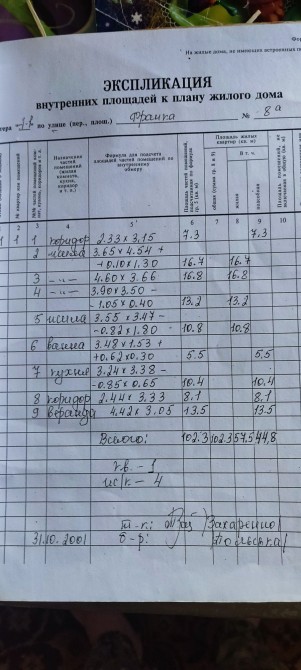 На жилые дома, не имеющие встроенных
ЭКСПЛИКАЦИЯ
внутренних площадей к плану жилого дома
по улице (пер., площ.) Франка № 8а
Назначение частей помещений (жилая комната, кухня, коридор и т. п.)
Формула для подсчета площадей частей помещений по внутреннему обмеру
Площадь жилых квартир (кв. м)
В т. ч.
жилая
подсобная
2 3 4 5 6 7 8 9 10
1 1 1 коридор 2.33 х 3.15 7.3 7.3
2 3.65 х 4.54 +
+0.10 х 1.30 16.7 16.7
3 -"- 4.60 х 3.66 16.8 16.8
4 -"- 3.90 х 3.50 -
-1.05 х 0.40 13.2 13.2
5 3.55 х 3.47 -
-0.82 х 1.80 10.8 10.8
6 ванна 3.48 х 1.53 +
+0.62 х 0.30 5.5 5.5
7 кухня 3.24 х 3.38 -
-0.85 х 0.65 10.4 10.4
8 коридор 2.44 х 3.33 8.1 8.1
9 веранда 4.42 х 3.05 13.5 13.5
Всього: 102.3 102.3 57.5 44,8
кв. - 1
ж/к - 4
т-к: /Захаренко/
31.10.2001 б-р: /Польська/